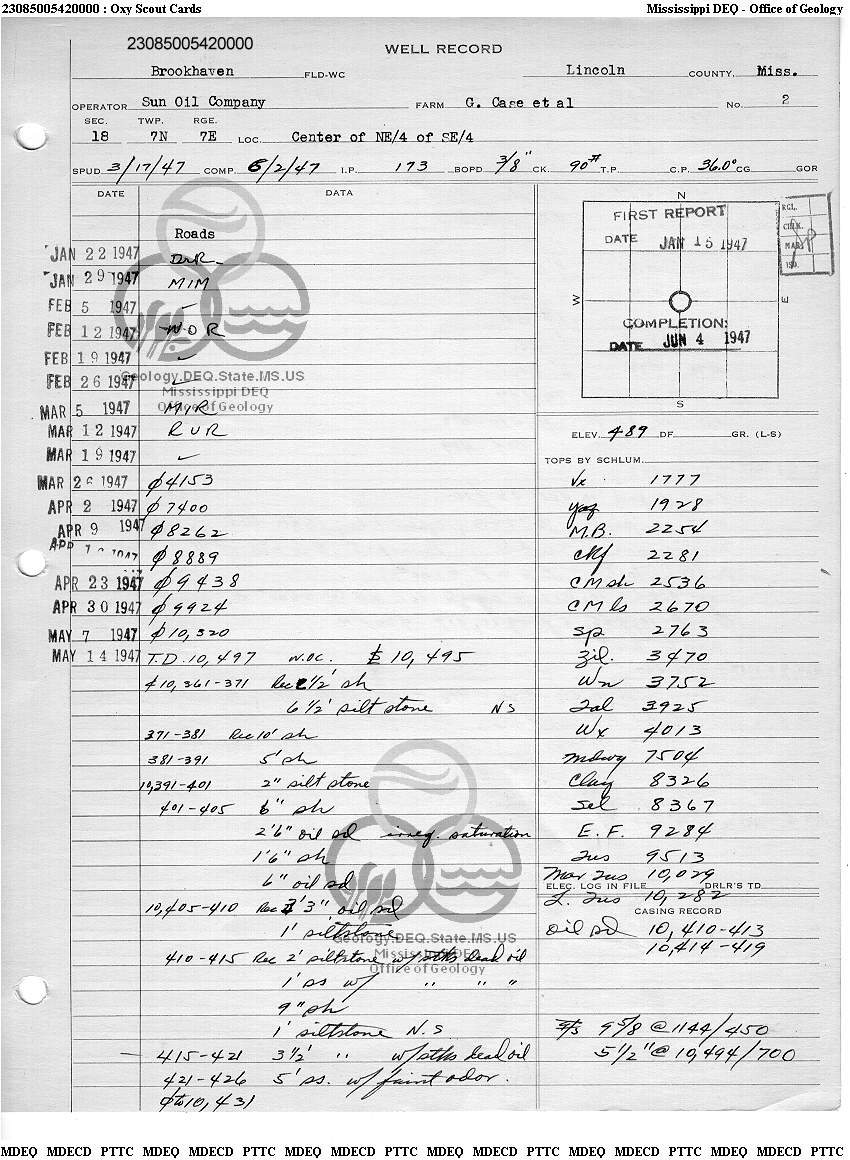 23085005420000 : Oxy Scout Cards Mississippi DEQ - Office of Geology
23085005420000
WELL RECORD
Brookhaven FLD-WC Lincoln COUNTY, Miss.
OPERATOR Sun Oil Company FARM G. Case et al No. 2
SEC. TWP. RGE.
18 7N 7E LOC. Center of NE/4 of SE/4
SPUD 3/17/47 COMP. 6/2/47 I.P. 173 BOPD 3/8" CK. 90# T.P. C.P. 36.0° CG GOR
DATE DATA
Roads
JAN 22 1947 DrR
JAN 29 1947 MIM
FEB 5 1947 ✓
FEB 12 1947 WOR
FEB 19 1947 ✓
FEB 26 1947 ✓
MAR 5 1947 MIR
MAR 12 1947 RUR
MAR 19 1947 ✓
MAR 26 1947 ϕ4153
APR 2 1947 ϕ7400
APR 9 1947 ϕ8262
APR 1947 ϕ8889
APR 23 1947 ϕ9438
APR 30 1947 ϕ9924
MAY 7 1947 ϕ10,320
MAY 14 1947 T.D. 10,497 W.O.C. 10,495
10,361-371 Rec 2 1/2' sh
6 1/2' silt stone NS
371-381 Rec 10' sh
381-391 5' sh
10,391-401 2" silt stone
401-405 6" sh
2'6" oil sd irreg. saturation
1'6" sh
6" oil sd
10,405-410 Rec 3'3" oil sd
1' siltstone
410-415 Rec 2' siltstone w/ stks dead oil
1' ss w/ " " "
9" sh
1' siltstone N.S
415-421 3 1/2' " w/stks dead oil
421-426 5' ss. w/ faint odor.
ϕ to 10,431
N
FIRST REPORT
DATE JAN 15 1947
W E
COMPLETION:
DATE JUN 4 1947
S
RGL.
CHK.
MAP
ISO.
ELEV. 489 DF GR. (L-S)
TOPS BY SCHLUM.
Vx 1777
yaz 1928
M.B. 2254
ckf 2281
CM sh 2536
CM ls 2670
sp 2763
Zil. 3470
Wn 3752
Sal 3925
Wx 4013
mdwy 7504
Clay 8326
Sel 8367
E.F. 9284
Tus 9513
Mar Tus 10,029
ELEC. LOG IN FILE DRLR'S TD
L. Tus 10,282
CASING RECORD
oil sd 10,410-413
10,414-419
9 5/8 @ 1144/450
5 1/2" @ 10,494/700
Geology.DEQ.State.MS.US
Mississippi DEQ
Office of Geology
Geology.DEQ.State.MS.US
Mississippi DEQ
Office of Geology
MDEQ MDECD PTTC MDEQ MDECD PTTC MDEQ MDECD PTTC MDEQ MDECD PTTC MDEQ MDECD PTTC MDEQ MDECD PTTC